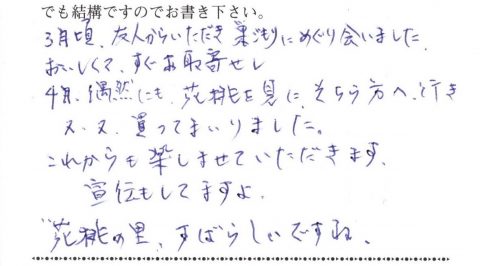 でも結構ですのでお書き下さい。
3月頃、友人からいただき 巣ごもりにめぐり会いました
おいしくて、すぐお取寄せし
4月、偶然にも、花桃を見に、そちら方へ、行き
又、又、買ってまいりました。
これからも楽しませていただきます、
宣伝もしてますよ、
"花桃の里、すばらしいですね、